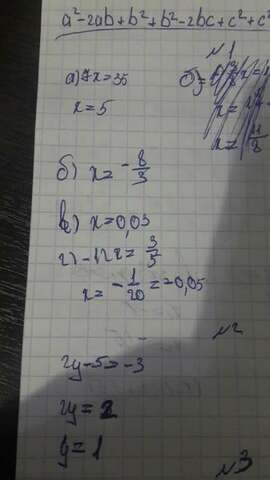 a²-2ab+b²+b²-2bc+c²+c²
№1
а) 7x=35
x=5
б) x= -8/3
в) x=0,03
г) -12x= 3/5
x= -1/20 =-0,05
№2
2y-5=-3
2y=2
y=1
№3